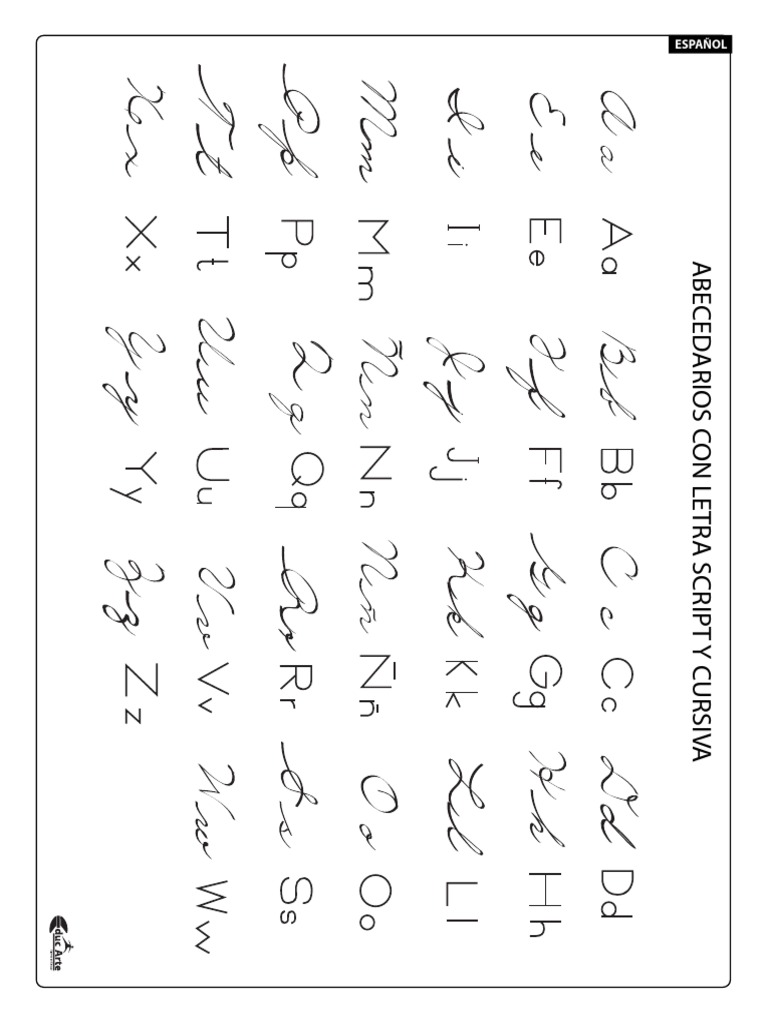 ESPAÑOL
ABECEDARIOS CON LETRA SCRIPT Y CURSIVA
A a Aa B b Bb C c Cc D d Dd
E e Ee F f Ff G g Gg H h Hh
I i Ii J j Jj K k Kk L l Ll
M m Mm Ñ n Nn N ñ Ññ O o Oo
P p Pp Q q Qq R r Rr S s Ss
T t Tt U u Uu V v Vv W w Ww
X x Xx Y y Yy Z z Zz
Educ Arte